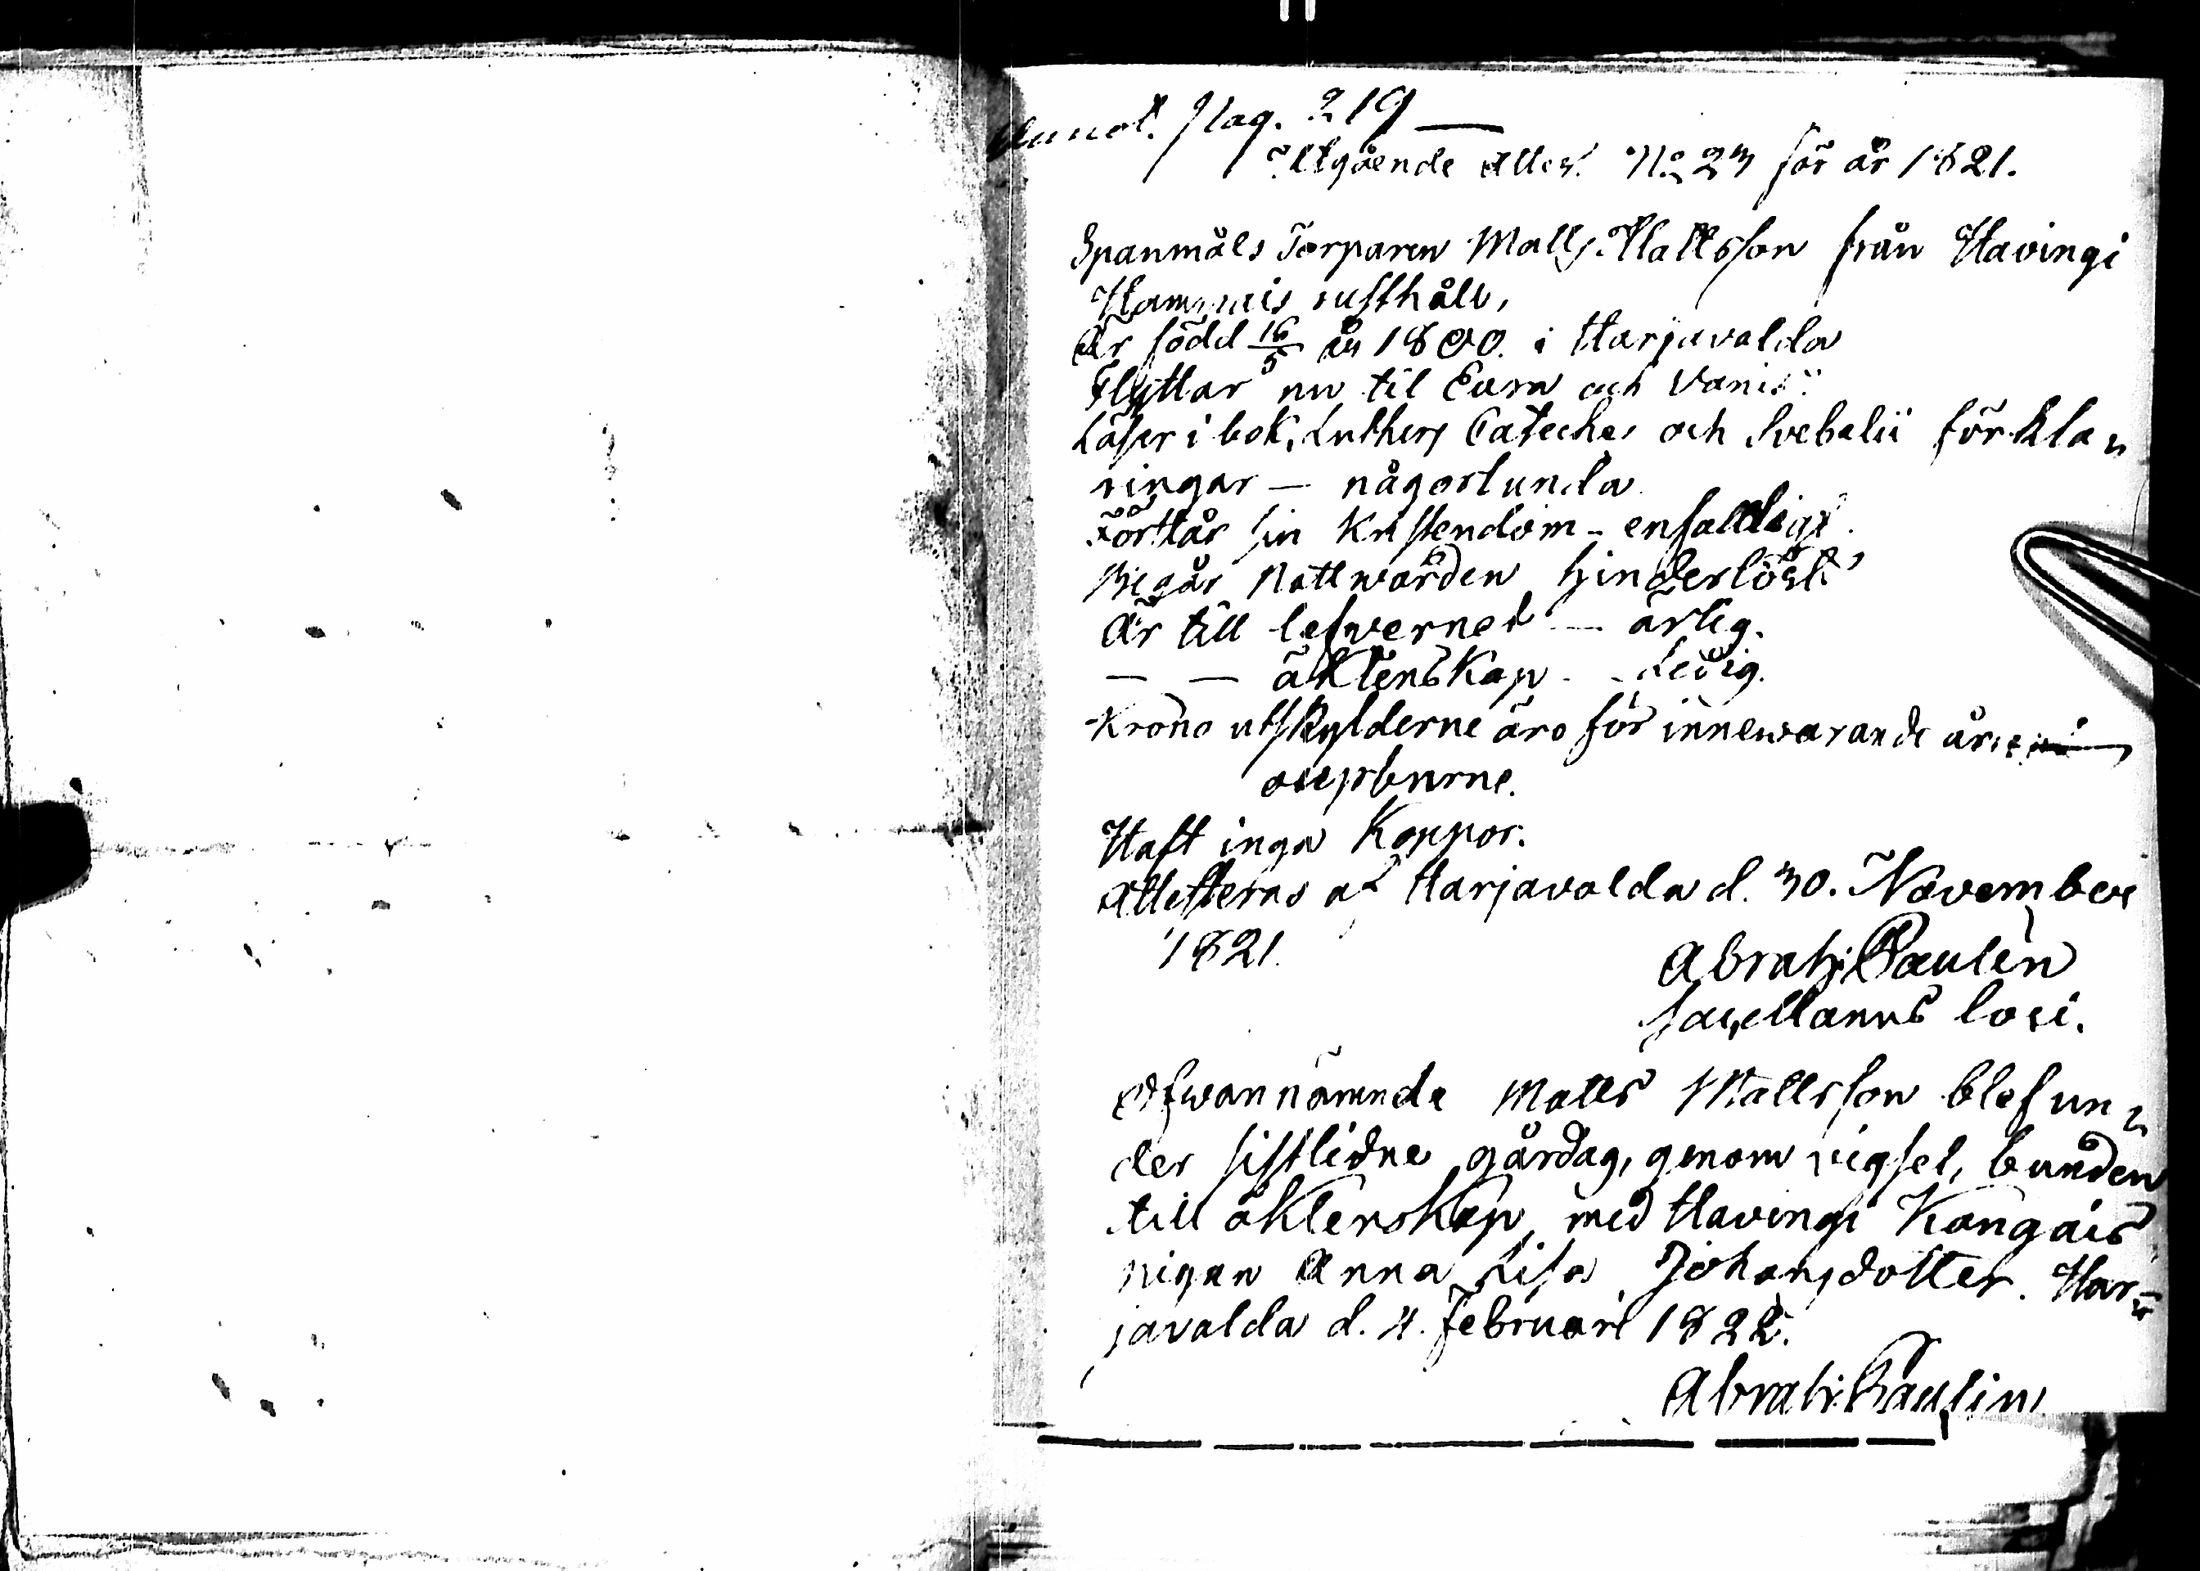 Annot. Pag. 219 —
Utgående Attest. No 23 för år 1821.
Spanmåls Torparen Matts Mattsson från Havingi
Hammais rusthåll,
Är född 16/5 år 1800. i Harjavalda
Flyttar nu til Eura och
Läser i bok, Luthers Cateches och Svebelii förkla„
ringar — någorlunda
Förstår sin Kristendom - enfaldigt.
Begår Nattwarden hinderlöst.
Är till lefvernet — ärlig.
— — äktenskap - - Ledig.
Krono utskylderne äro för innewarande år
oupburne.
Haft inga Koppor.
Attesteras af Harjavalda d. 30. November
1821.
Abrah: Paulin
sacellanus loci.
Ofwannämnde Matts Mattsson blef un„
der sistlidne gårdag, genom vigsel, bunden
till äktenskap med Havingi Kangais
pigan Anna Lisa Johansdotter. Har„
javalda d. 4. Februari 1822.
Abrah: Paulin